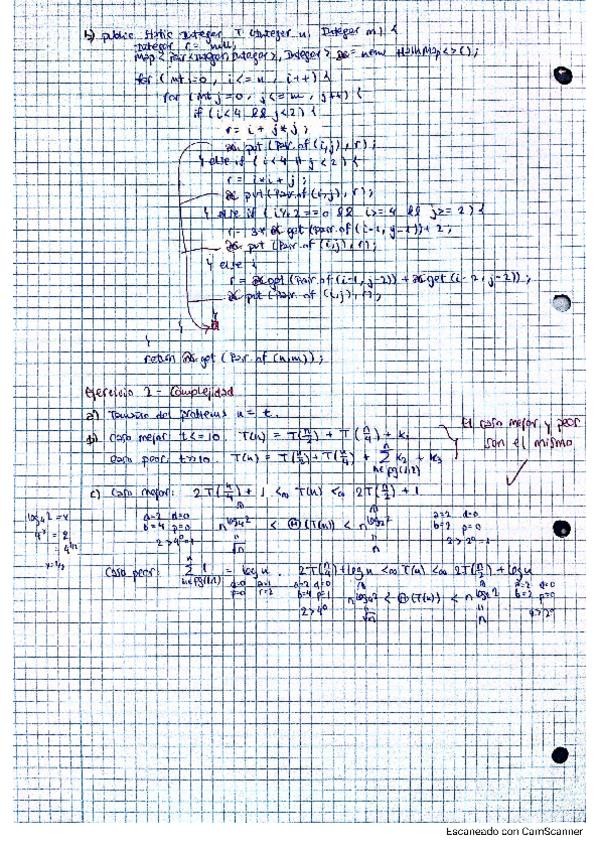 b) public static Integer T (Integer n, Integer m) {
Integer r = null;
Map < Pair<Integer, Integer>, Integer> = new HashMap<>();
for (int i=0, i<=n, i++) {
for (int j=0, j<=m, j++) {
if (i<4 && j<2) {
r = i + j*j;
put (Pair.of (i,j), r);
} else if (i<4 || j<2) {
r = i*i + j;
put (Pair.of (i,j), r);
} else if (i%2==0 && i>=4 && j>=2) {
get (Pair.of (i-1, j-1)) + 2;
put (Pair.of (i,j), r);
} else {
r = get (Pair.of (i-1, j-2)) + get (i-2, j-2));
put (Pair.of (i,j), r);
}
}
return get (Pair.of (n,m));
Ejercicio 2 - Complejidad
a) Tamaño del problema n = t.
b) Caso mejor t<=10. T(n) = T(n/2) + T(n/4) + k₁
Caso peor t>10. T(n) = T(n/2) + T(n/4) + Σ k₂ + k₃
El caso mejor y peor
son el mismo
c) Caso mejor: 2T(n/4) + 1 <∞ T(n) <∞ 2T(n/2) + 1
log₄2 = x
a=2 d=0
b=4 p=0
2>4⁰=1
n^log₄2 < Θ(T(n)) < n^log₂2
a=2 d=0
b=2 p=0
2>2⁰=1
4ˣ = 2
4^1/2
x=1/2
√n
n
Caso peor: Σ 1 = log n. 2T(n/4) + log n <∞ T(n) <∞ 2T(n/2) + log n
n^log₄2 < Θ(T(n)) < n^log₂2
2>4⁰
√n
n
Escaneado con CamScanner